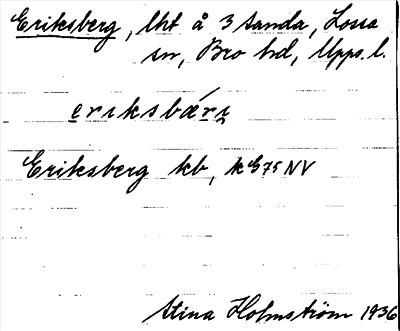 Eriksberg, lht å 3 Sanda, Lossa
sn, Bro hd, Upps. l.
eriksbæ̀rj
Eriksberg kb, k E75 NV
Stina Holmström 1936